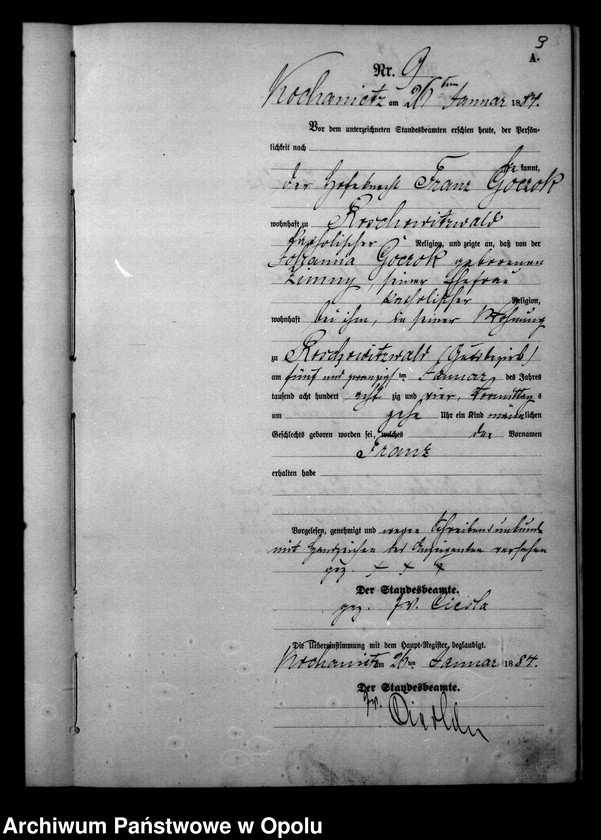 9
A.
Nr. 9
Kochanietz am 26ten Januar 1884.
Vor dem unterzeichneten Standesbeamten erschien heute, der Persön-
lichkeit nach
be kannt,
der Franz Goczok
wohnhaft zu Koschowitzwald
katholischer Religion, und zeigte an, daß von der
Johanna Goczok geborenen
Zimny, seiner Ehefrau
katholischer Religion,
wohnhaft bei ihm, in seiner Wohnung
zu Koschowitzwald (Gutsbezirk)
am fünf und zwanzigsten Januar des Jahres
tausend acht hundert acht zig und vier, Vormittags
um zehn Uhr ein Kind männlichen
Geschlechts geboren worden sei, welches den Vornamen
Franz
erhalten habe
Vorgelesen, genehmigt und wegen Schreibensunkunde
mit Handzeichen des versehen
gez. + + +
Der Standesbeamte.
gez. Jv.
Die Uebereinstimmung mit dem Haupt-Register, beglaubigt.
Kochanietz am 26ten Januar 1884.
Der Standesbeamte.
Jv.
Archiwum Państwowe w Opolu